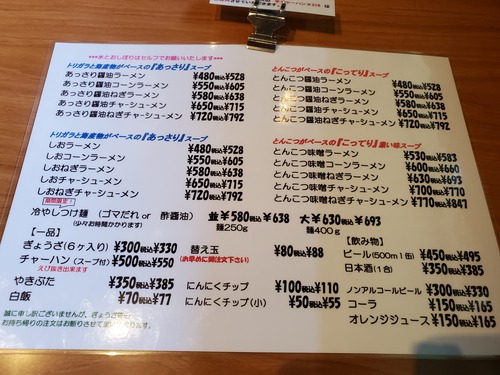 ***水とおしぼりはセルフでお願いいたします***
トリガラと海産物がベースの『あっさり』スープ
あっさり醤油ラーメン ¥480税込¥528
あっさり醤油コーンラーメン ¥550税込¥605
あっさり醤油ねぎラーメン ¥580税込¥638
あっさり醤油チャーシューメン ¥650税込¥715
あっさり醤油ねぎチャーシューメン ¥720税込¥792
とんこつがベースの『こってり』スープ
とんこつ醤油ラーメン ¥480税込¥528
とんこつ醤油コーンラーメン ¥550税込¥605
とんこつ醤油ねぎラーメン ¥580税込¥638
とんこつ醤油チャーシューメン ¥650税込¥715
とんこつ醤油ねぎチャーシューメン ¥720税込¥792
トリガラと海産物がベースの『あっさり』スープ
しおラーメン ¥480税込¥528
しおコーンラーメン ¥550税込¥605
しおねぎラーメン ¥580税込¥638
しおチャーシューメン ¥650税込¥715
しおねぎチャーシューメン ¥720税込¥792
とんこつがベースの『こってり』濃い味スープ
とんこつ味噌ラーメン ¥530税込¥583
とんこつ味噌コーンラーメン ¥600税込¥660
とんこつ味噌ねぎラーメン ¥630税込¥693
とんこつ味噌チャーシューメン ¥700税込¥770
とんこつ味噌ねぎチャーシューメン ¥770税込¥847
期間限定!
冷やしつけ麺 (ゴマだれ or 酢醤油) 並¥580税込¥638 大¥630税込¥693
(少々お時間かかります) 麺250g 麺400g
【一品】
ぎょうざ(6ヶ入り) ¥300税込¥330
チャーハン(スープ付) ¥500税込¥550
えび抜き出来ます
やきぶた ¥350税込¥385
白飯 ¥70税込¥77
替え玉 ¥80税込¥88
(お早めに御注文下さい)
にんにくチップ ¥100税込¥110
にんにくチップ(小) ¥50税込¥55
【飲み物】
ビール(500ml缶) ¥450税込¥495
日本酒(1合) ¥350税込¥385
ノンアルコールビール ¥300税込¥330
コーラ ¥150税込¥165
オレンジジュース ¥150税込¥165
誠に申し訳ございませんが、ぎょうざ等の
お持ち帰りの注文はお断りさせて